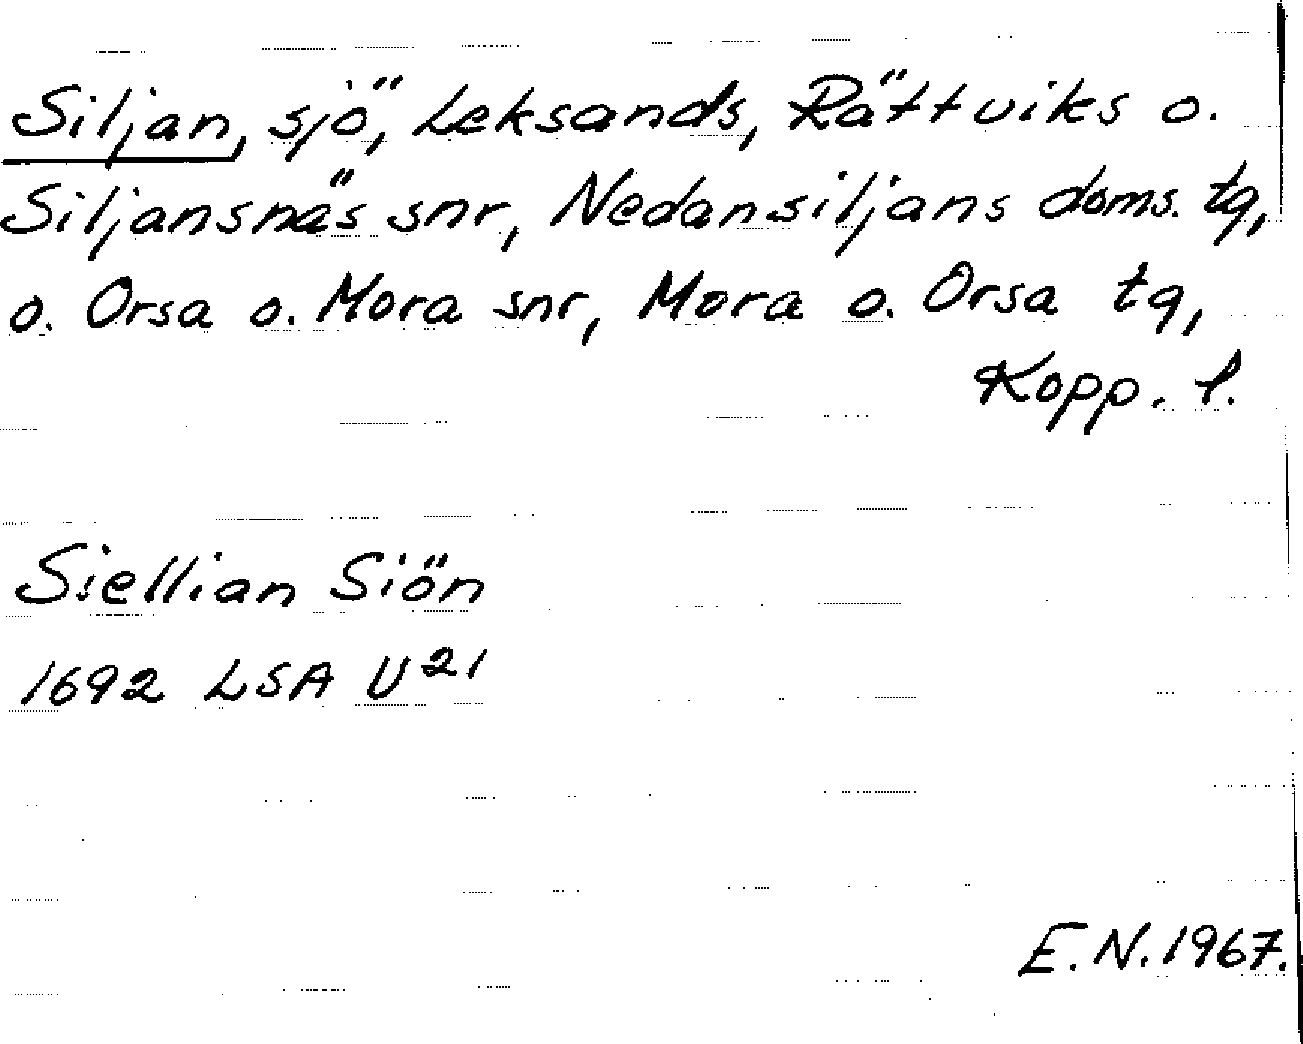 Siljan, sjö, Leksands, Rättviks o.
Siljansnäs snr, Nedansiljans doms. tg,
o. Orsa o. Mora snr, Mora o. Orsa tg,
Kopp. l.
Siellian Siön
1692 LSA U²¹
E.N. 1967.